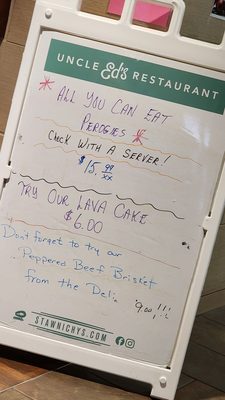 UNCLE Ed's RESTAURANT
ALL YOU CAN EAT
PEROGIES
CHECK WITH A SERVER!
$15.99
XX
TRY OUR LAVA CAKE
$6.00
Don't forget to try our
Peppered Beef Brisket
from the Deli.
9.00!!!
STAWNICHYS.COM